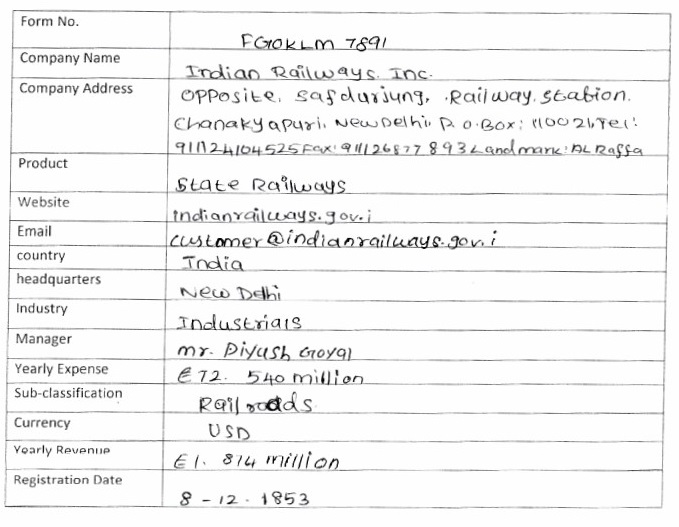 Form No.
FGOKLM 7891
Company Name
Indian Railways. Inc.
Company Address
Opposite, Safdurjung, Railway. Station.
Chanakyapuri, New Delhi, P. O. Box: 110021, Tel:
911124104525 Fax: 911126877893 Landmark: AL Raffa
Product
State Railways
Website
indianrailways.gov.i
Email
customer@indianrailways.gov.i
country
India
headquarters
New Delhi
Industry
Industrials
Manager
mr. Piyush Goyal
Yearly Expense
€72. 540 million
Sub-classification
Railroads
Currency
USD
Yearly Revenue
€1. 814 million
Registration Date
8 - 12 - 1853